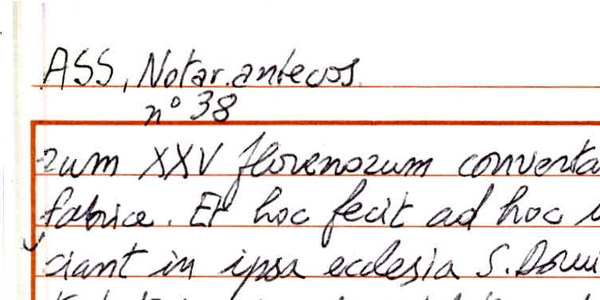 ASS, Notar. antecos.
n° 38
rum XXV florenorum converta
fabrice. Et hoc fecit ad hoc
ciant in ipsa ecclesia S. Domi